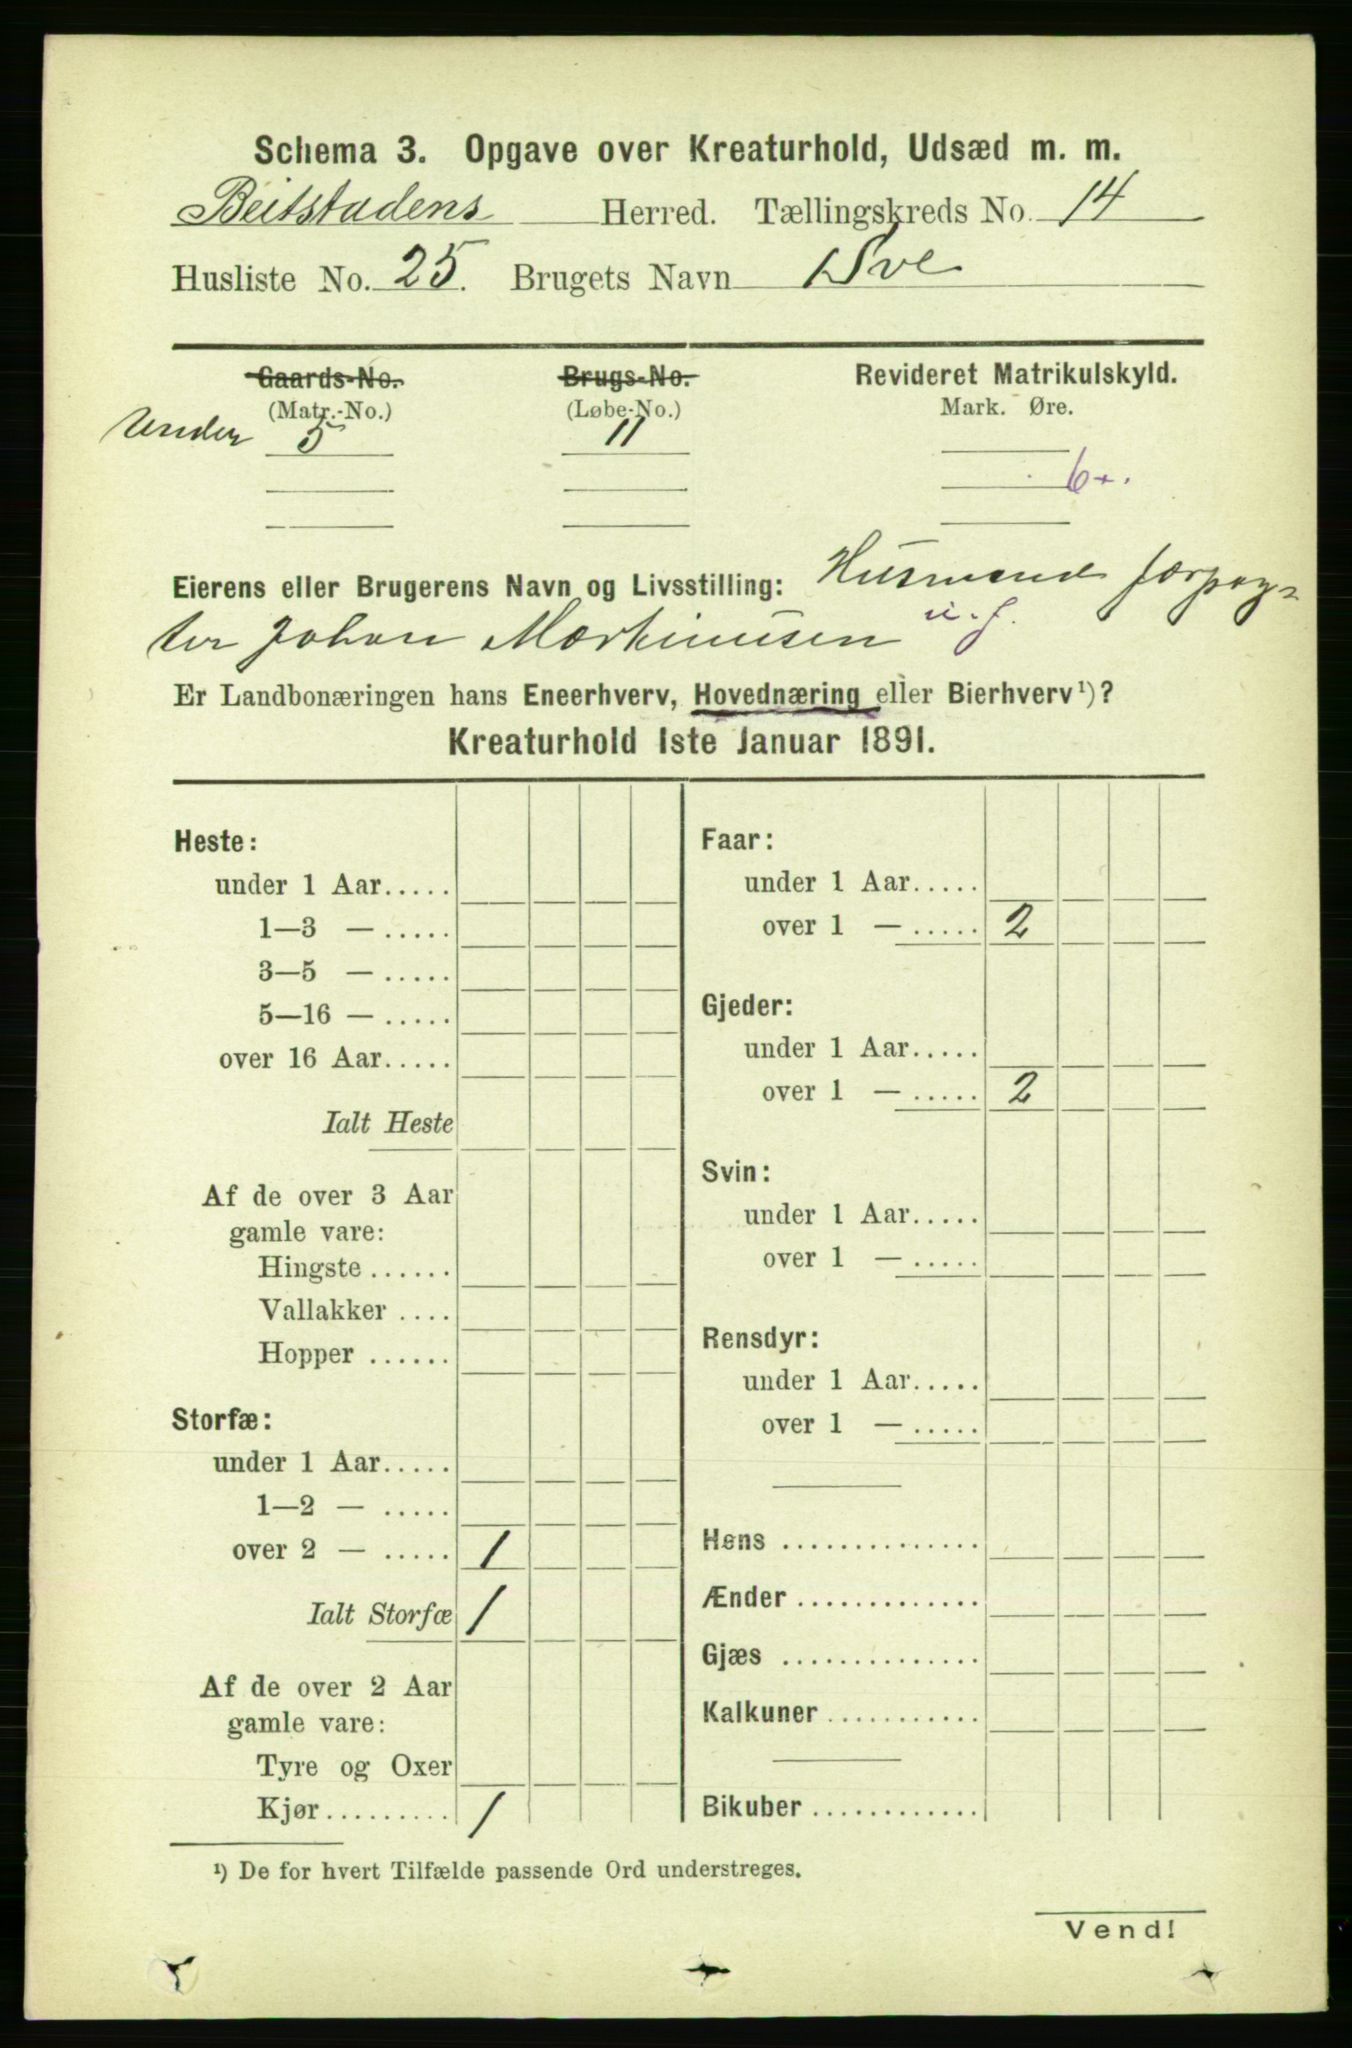 Schema 3. Opgave over Kreaturhold, Udsæd m. m.
Beitstadens Herred. Tællingskreds No. 14
Husliste No. 25. Brugets Navn
Gaards-No. Brugs-No. Revideret Matrikulskyld.
(Matr.-No.) (Løbe-No.) Mark. Øre.
Under 5 11
6
Eierens eller Brugerens Navn og Livsstilling: Husmand forpag-
ter Johan Martinusen u. f.
Er Landbonæringen hans Eneerhverv, Hovednæring eller Bierhverv¹)?
Kreaturhold 1ste Januar 1891.
Heste:
under 1 Aar.....
1—3 — .....
3—5 — .....
5—16 — .....
over 16 Aar.....
Ialt Heste
Af de over 3 Aar
gamle vare:
Hingste ......
Vallakker ....
Hopper ......
Storfæ:
under 1 Aar.....
1—2 — .....
over 2 — ..... 1
Ialt Storfæ 1
Af de over 2 Aar
gamle vare:
Tyre og Oxer
Kjør......... 1
Faar:
under 1 Aar.....
over 1 — ..... 2
Gjeder:
under 1 Aar.....
over 1 — ..... 2
Svin:
under 1 Aar.....
over 1 — .....
Rensdyr:
under 1 Aar.....
over 1 — .....
Høns ..............
Ænder .............
Gjæs ..............
Kalkuner ...........
Bikuber ............
¹) De for hvert Tilfælde passende Ord understreges.
Vend!